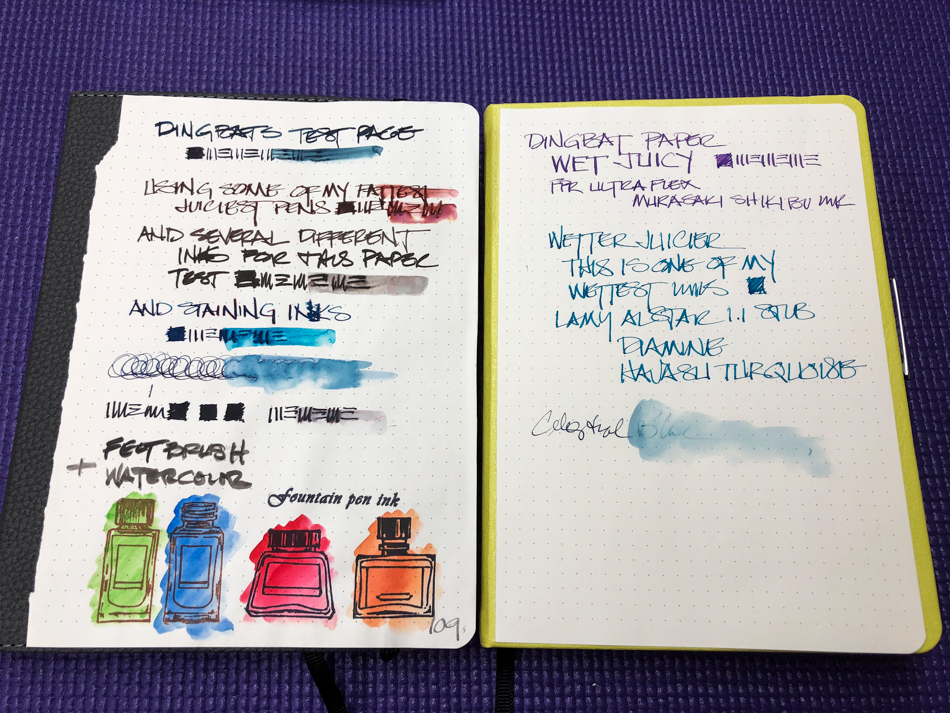 DINGBATS TEST PAGE
USING SOME OF MY FATTEST
JUICIEST PENS
AND SEVERAL DIFFERENT
INKS FOR THIS PAPER
TEST
AND STAINING INKS
FELT BRUSH
+ WATERCOLOR
Fountain pen ink
109.
DINGBAT PAPER
WET JUICY
FPR ULTRA FLEX
MURASAKI SHIKIBU INK
WETTER JUICIER
THIS IS ONE OF MY
WETTEST INKS
LAMY ALSTAR 1.1 STUB
DIAMINE
HAVASU TURQUOISE
Celestial Blue